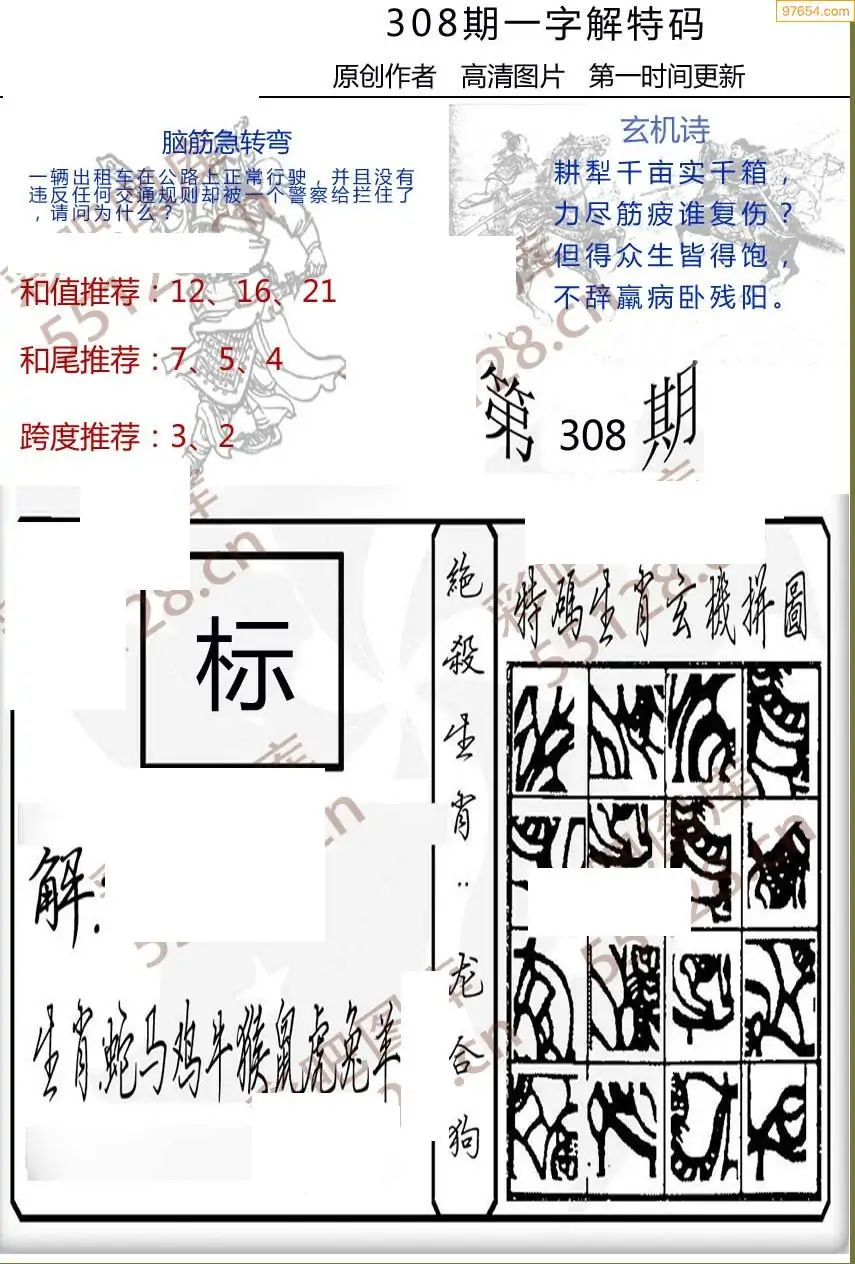 97654.com
308期一字解特码
原创作者 高清图片 第一时间更新
脑筋急转弯
一辆出租车在公路上正常行驶，并且没有
违反任何交通规则却被一个警察给拦住了
，请问为什么？
和值推荐：12、16、21
和尾推荐：7、5、4
跨度推荐：3、2
玄机诗
耕犁千亩实千箱，
力尽筋疲谁复伤？
但得众生皆得饱，
不辞羸病卧残阳。
第 308 期
标
解：
生肖:蛇马鸡牛猴鼠虎兔羊
絶殺生肖：龙合狗
特碼生肖玄機拼圖